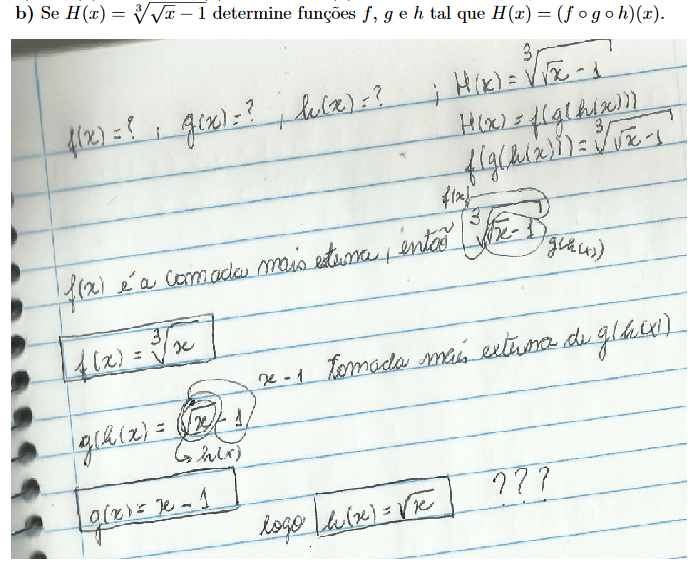 b) Se H(x) = ∛(√x − 1) determine funções f, g e h tal que H(x) = (f ∘ g ∘ h)(x).
f(x) = ? ; g(x) = ? ; h(x) = ? ; H(x) = ∛(√x − 1)
H(x) = f(g(h(x)))
f(g(h(x))) = ∛(√x − 1)
f(x)
f(x) é a camada mais externa, então ∛(√x − 1)
g(h(x))
f(x) = ∛x
x − 1 Tomada mais externa de g(h(x))
g(h(x) = √x − 1
↳ h(x)
g(x) = x − 1
logo h(x) = √x ???